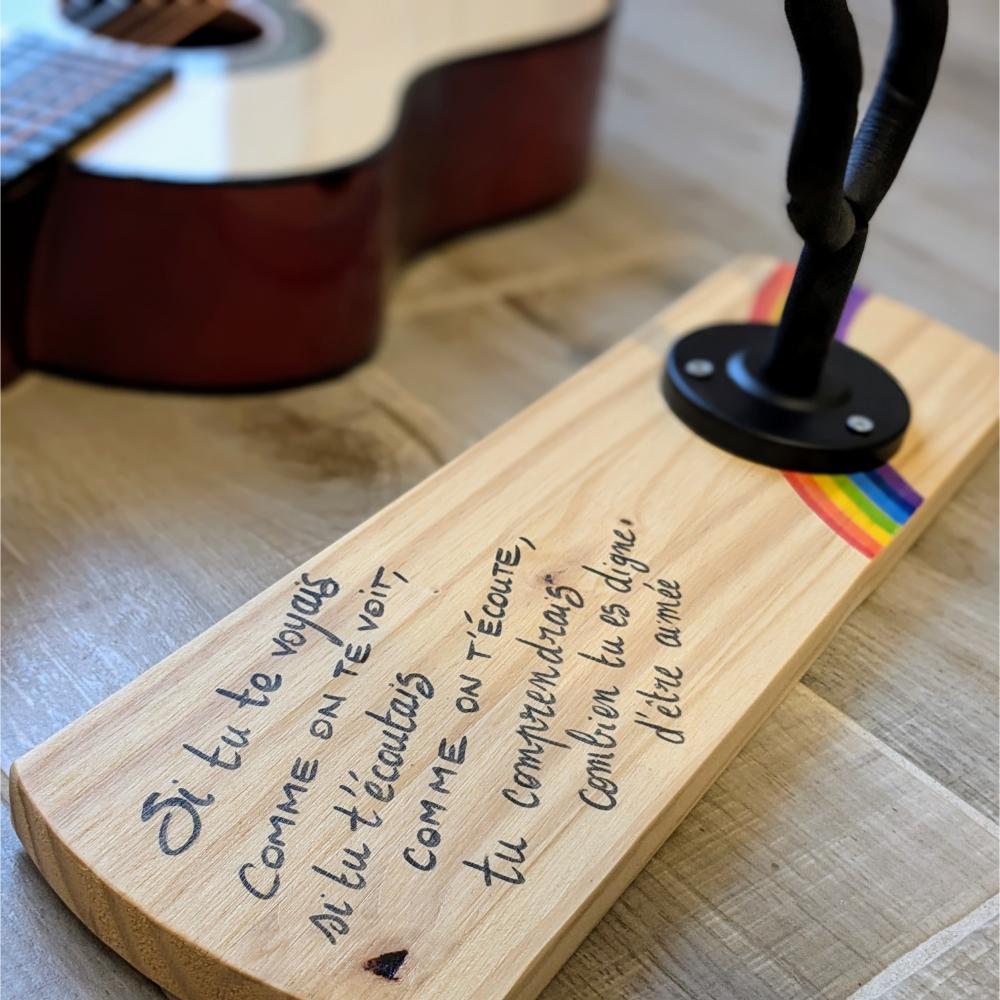 Si tu te voyais
COMME ON TE VOIT,
si tu t'écoutais
COMME ON T'ÉCOUTE,
tu comprendrais
combien tu es digne
d'être aimée.